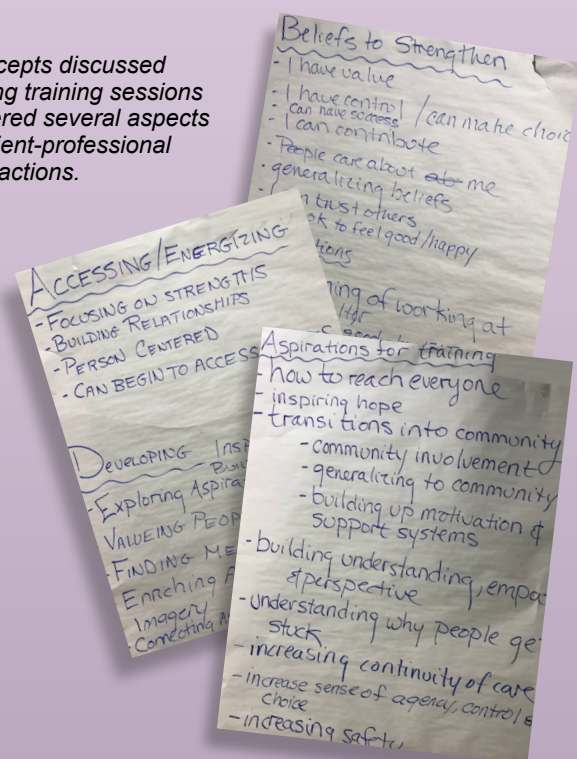 cepts discussed
ng training sessions
ered several aspects
ient-professional
actions.
Beliefs to Strengthen
- I have value
- I have control / can make choic
- can have success
- I can contribute
- People care about me
- generalizing beliefs
n trust others
ok to feel good/happy
tions
ning of working at
ACCESSING/ENERGIZING
- FOCUSING ON STRENGTHS
- BUILDING RELATIONSHIPS
- PERSON CENTERED
- CAN BEGIN TO ACCESS
DEVELOPING Insp
- Exploring Aspira
VALUEING PEOP
- FINDING ME
Enriching
Imagery
Connecting
Aspirations for training
- how to reach everyone
- inspiring hope
- transitions into community
- community involvement
- generalizing to community
- building up motivation &
support systems
- building understanding, empa
& perspective
- understanding why people ge
stuck
- increasing continuity of care
- increase sense of agency, control &
choice
- increasing safety